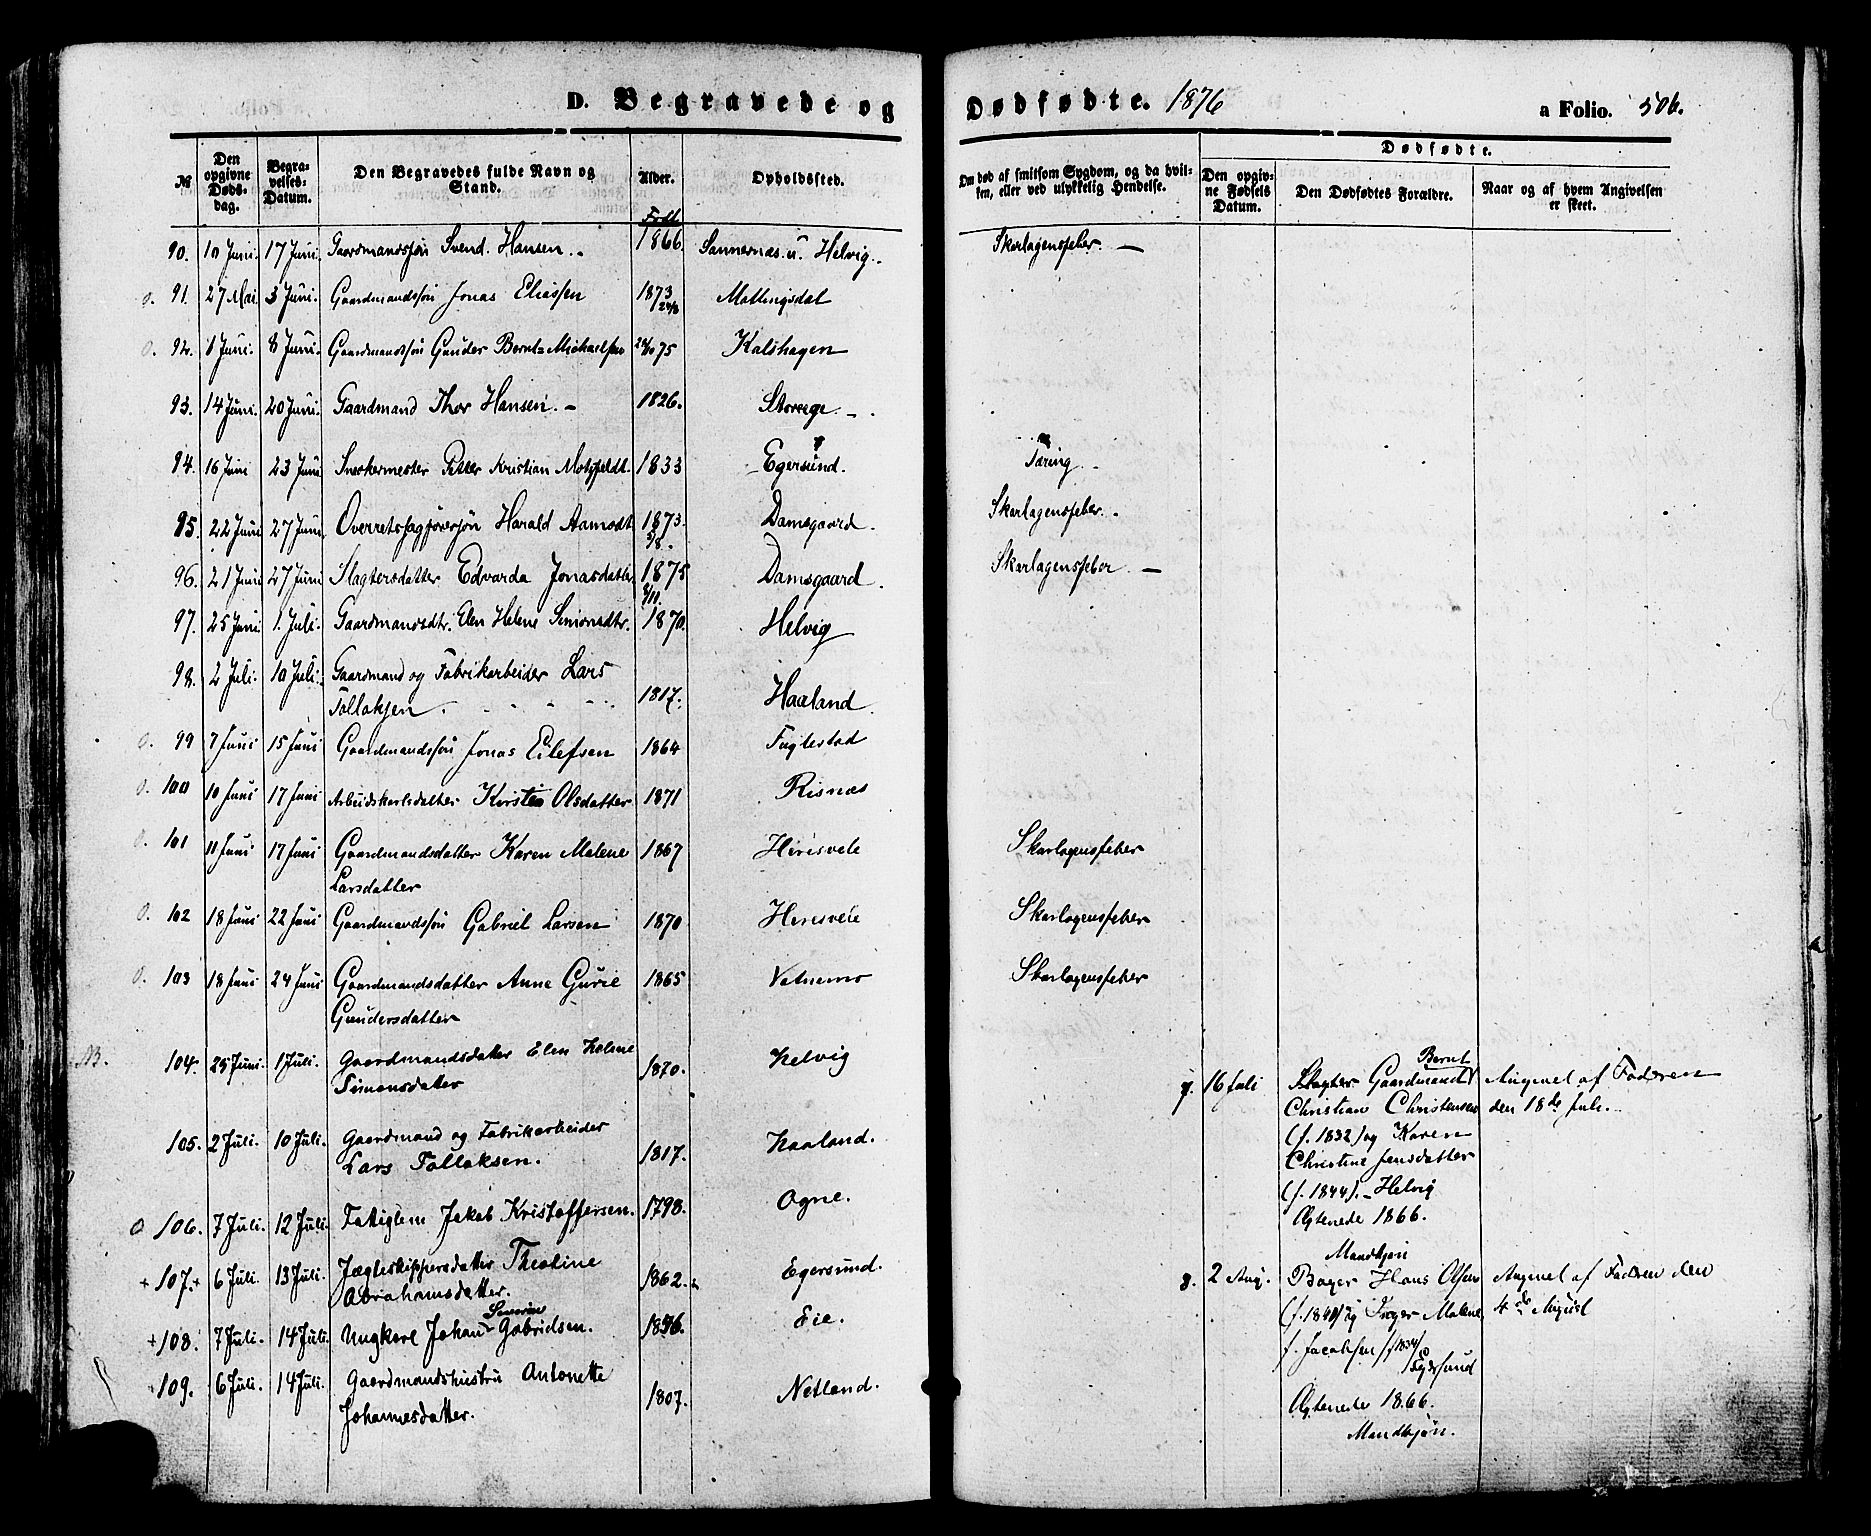 D. Begravede og Dødfødte. 1876 a Folio. 506.
№
Den opgivne Døds-dag.
Begra-velses-Datum.
Den Begravedes fulde Navn og Stand.
Alder.
Opholdssted.
Om død af smitsom Sygdom, og da hvil-
ken, eller ved ulykkelig Hendelse.
Dødfødte.
Den opgiv-
ne Fødsels
Datum.
Den Dødfødtes Forældre.
Naar og af hvem Angivelsen
er skeet.
Født
90. 10 Juni. 17 Juni. Gaardmandssøn Svend Hansen 1866. Sannernæs u. Helvig. Skarlagensfeber. —
o. 91. 27 Mai 3 Juni. Gaardmandssøn Jonas Eliassen 1873 Mollingsdal
o. 92. 1 Juni. 8 Juni. Gaardmandssøn Gunder Bernt Michaelsen 75 Kalshagen
93. 14 Juni. 20 Juni. Gaardmand Thor Hansen. — 1826. Storeege
94. 16 Juni 23 Juni Snekkermester Petter Kristian Motzfeldt 1833 Egersund. Tæring
95. 22 Juni 27 Juni Overretssagførersøn Harald Aamodt 1873. Damsgaard. Skarlagensfeber.
3/8.
96. 21 Juni 27 Juni Slagtersdatter Edvarda Jonasdatter 1875 Damsgaard. Skarlagensfeber. —
97. 25 Juni 1. Juli. Gaardmandsdtr. Elen Helene Simonsdtr. 1870. Helvig
98. 2 Juli. 10 Juli. Gaardmand og Fabrikarbeider Lars
Tollaksen 1817. Haaland.
o. 99 7 Juni 15 Juni Gaardmandssøn Jonas Eilefsen 1864 Fuglestad
o. 100 10 Juni 17 Juni Arbeidskarlsdatter Kirsten Olsdatter 1871 Risnæs
o. 101 11 Juni 17 Juni Gaardmandsdatter Karen Malene 1867 Hirisvele Skarlagensfeber
Larsdatter
o. 102 18 Juni 22 Juni Gaardmandssøn Gabriel Larsen 1870 Hirisvele Skarlagensfeber
o. 103 18 Juni 24 Juni Gaardmandsdatter Anne Gurie 1865 Vetnemo Skarlagensfeber
Gundersdatter
104. 25 Juni. 1 Juli. Gaardmandsdatter Elen Helene 1870. Helvig
Simonsdatter
105. 2 Juli. 10 Juli. Gaardmand og Fabrikarbeider
Lars Tollaksen. 1817. Haaland.
o 106. 7 Juli. 12 Juli. Fattiglem Jakob Kristoffersen. 1798. Ogne.
+ 107. + 6 Juli. 13 Juli. Jægteskippersdatter Theoline 1862. Egersund.
Abrahamsdatter.
Severin
+ 108. 7 Juli. 14 Juli. Ungkarl Johan Gabrielsen. Eie.
109. 6 Juli. 14 Juli. Gaardmandshustru Antonette 1807. Netland.
Johannesdatter.
Bernt
7. 16 Juli Slagter Gaardmand Anmel af Faderen
Christian Christensen den 18de Juli.
(f. 1832) og Karen
Christine Jensdatter
(f. 1844). — Helvig
Ægteviede 1866.
Mandkjøn
8. 2 Aug. Bager Hans Olsen Anmel af Faderen den
(f. 1840) og Inger Malene 4de August
f. Jacobsen (f 1834)
Egersund
Ægteviede 1866.
Mandkjøn.